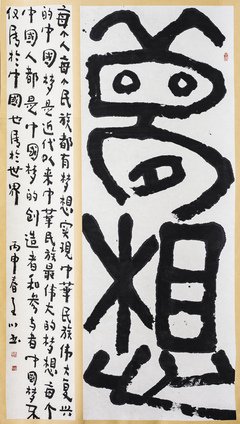 夢想
每个人每个民族都有梦想实现中華民族伟大复兴
的中国梦是近代以来中華民族最伟大的梦想每个
中國人都是中国梦的创造者和参与者中國梦不
仅属於中國也属於世界 丙申春